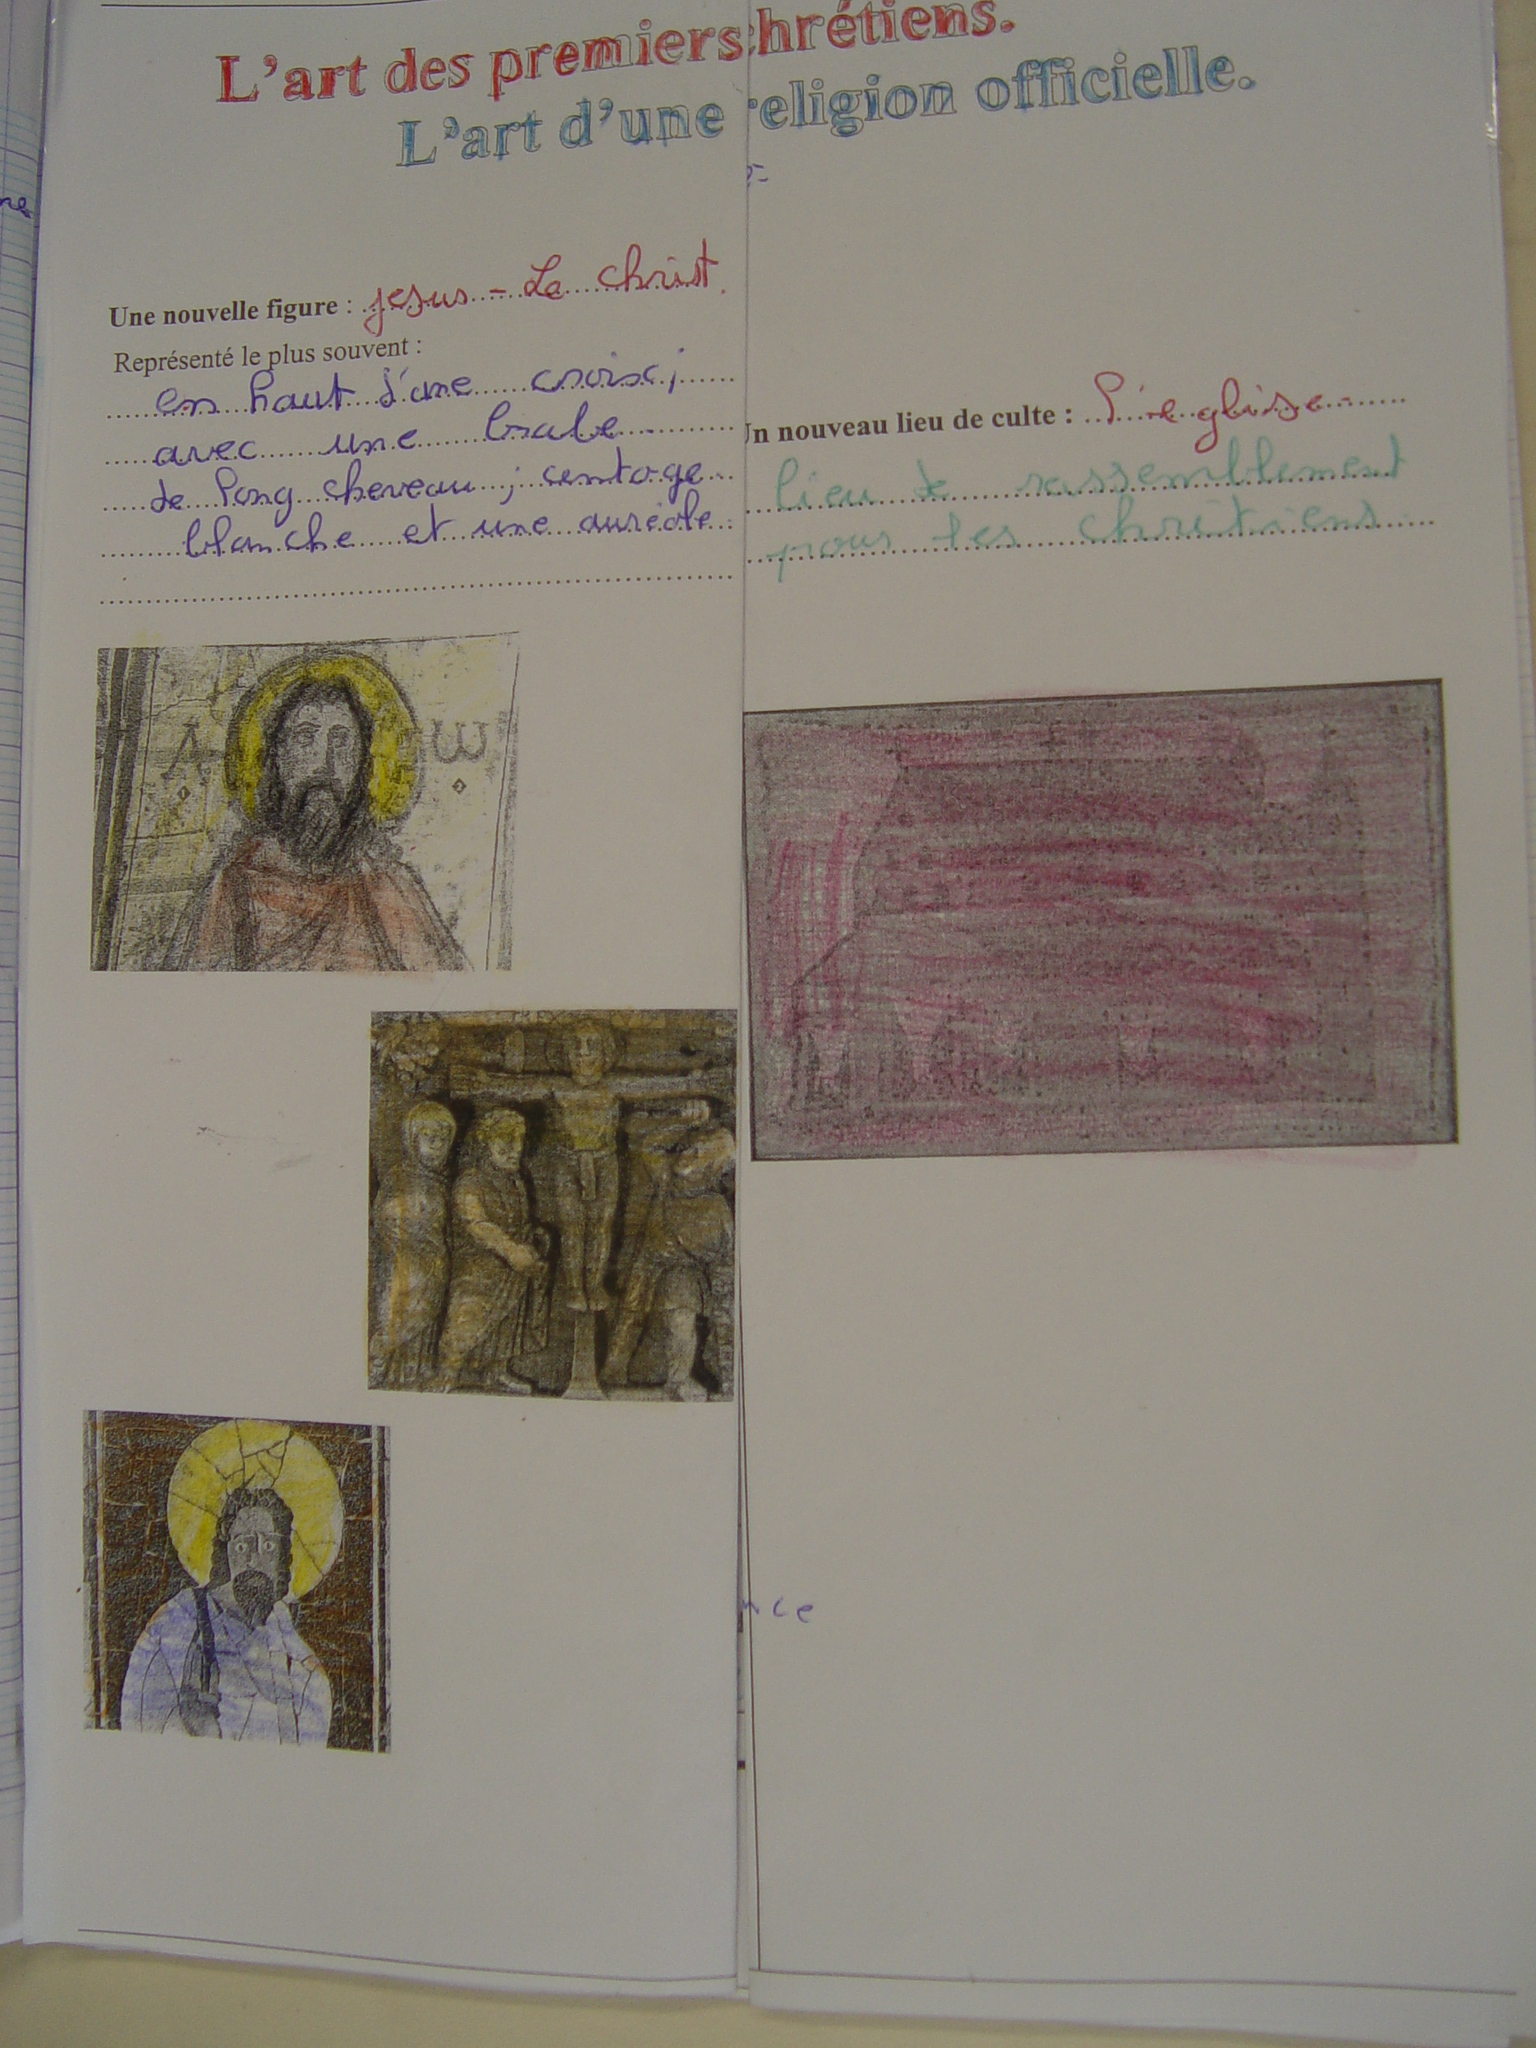 L'art des premiers chrétiens.
L'art d'une religion officielle.
Une nouvelle figure : jesus - Le christ.
Représenté le plus souvent :
en haut d'une croix ;
avec une brabe
de long cheveau ; un toge
blanche et une auréole
Un nouveau lieu de culte : l'eglise
lieu de rassemblement
pour les chrétiens.
A ω
nce